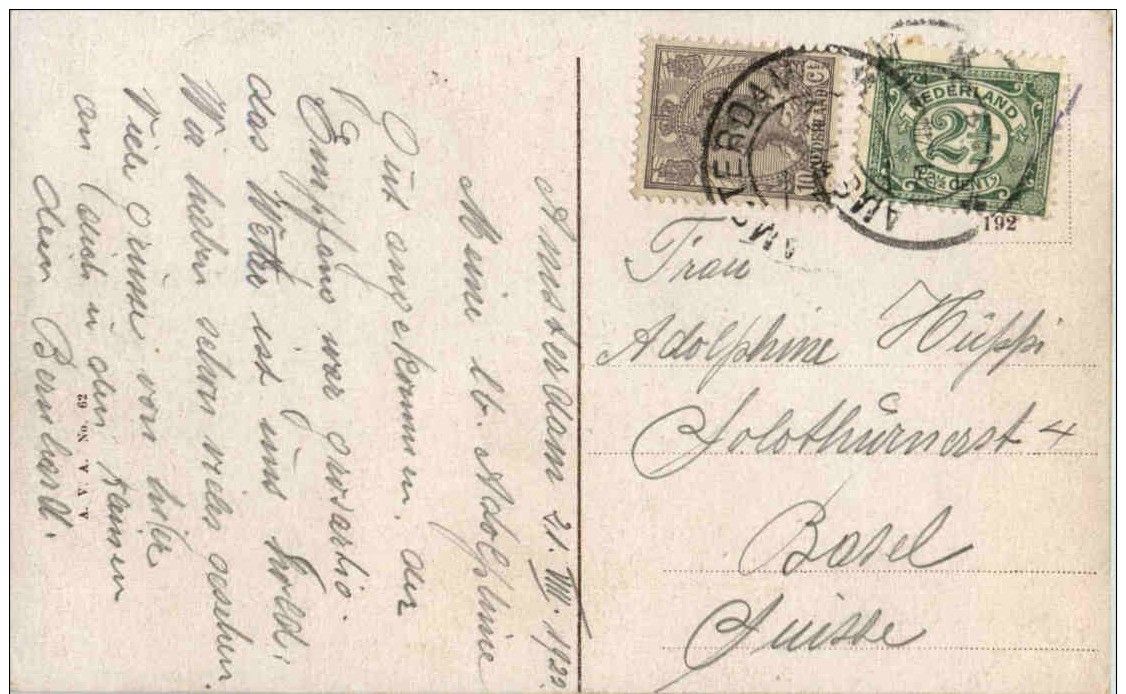 Amsterdam 21. VIII. 1922
Meine lb. Adolphine
Gut angekommen. der
Empfang war grosartig.
das Wetter ist uns hold.
Wir haben schon vieles gesehen.
Viele Grüsse von hier
an auch u den kleinen
dein Bernhard.
A. V. A. No. 62
10 NEDERLAND Ct
NEDERLAND
2½
CENT
AMSTERDAM
192
Frau
Adolphine Hüppi
Solothurnerst 4
Basel
Suisse